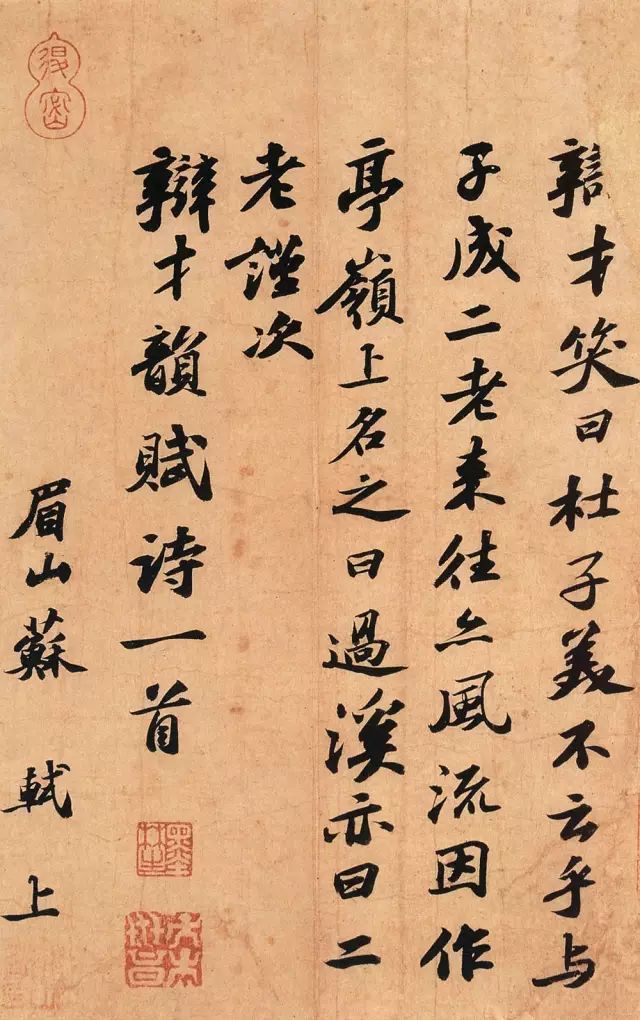 辯才笑曰杜子美不云乎与
子成二老来往亦風流因作
亭嶺上名之曰過溪亦曰二
老謹次
辯才韻賦詩一首
眉山蘇軾上